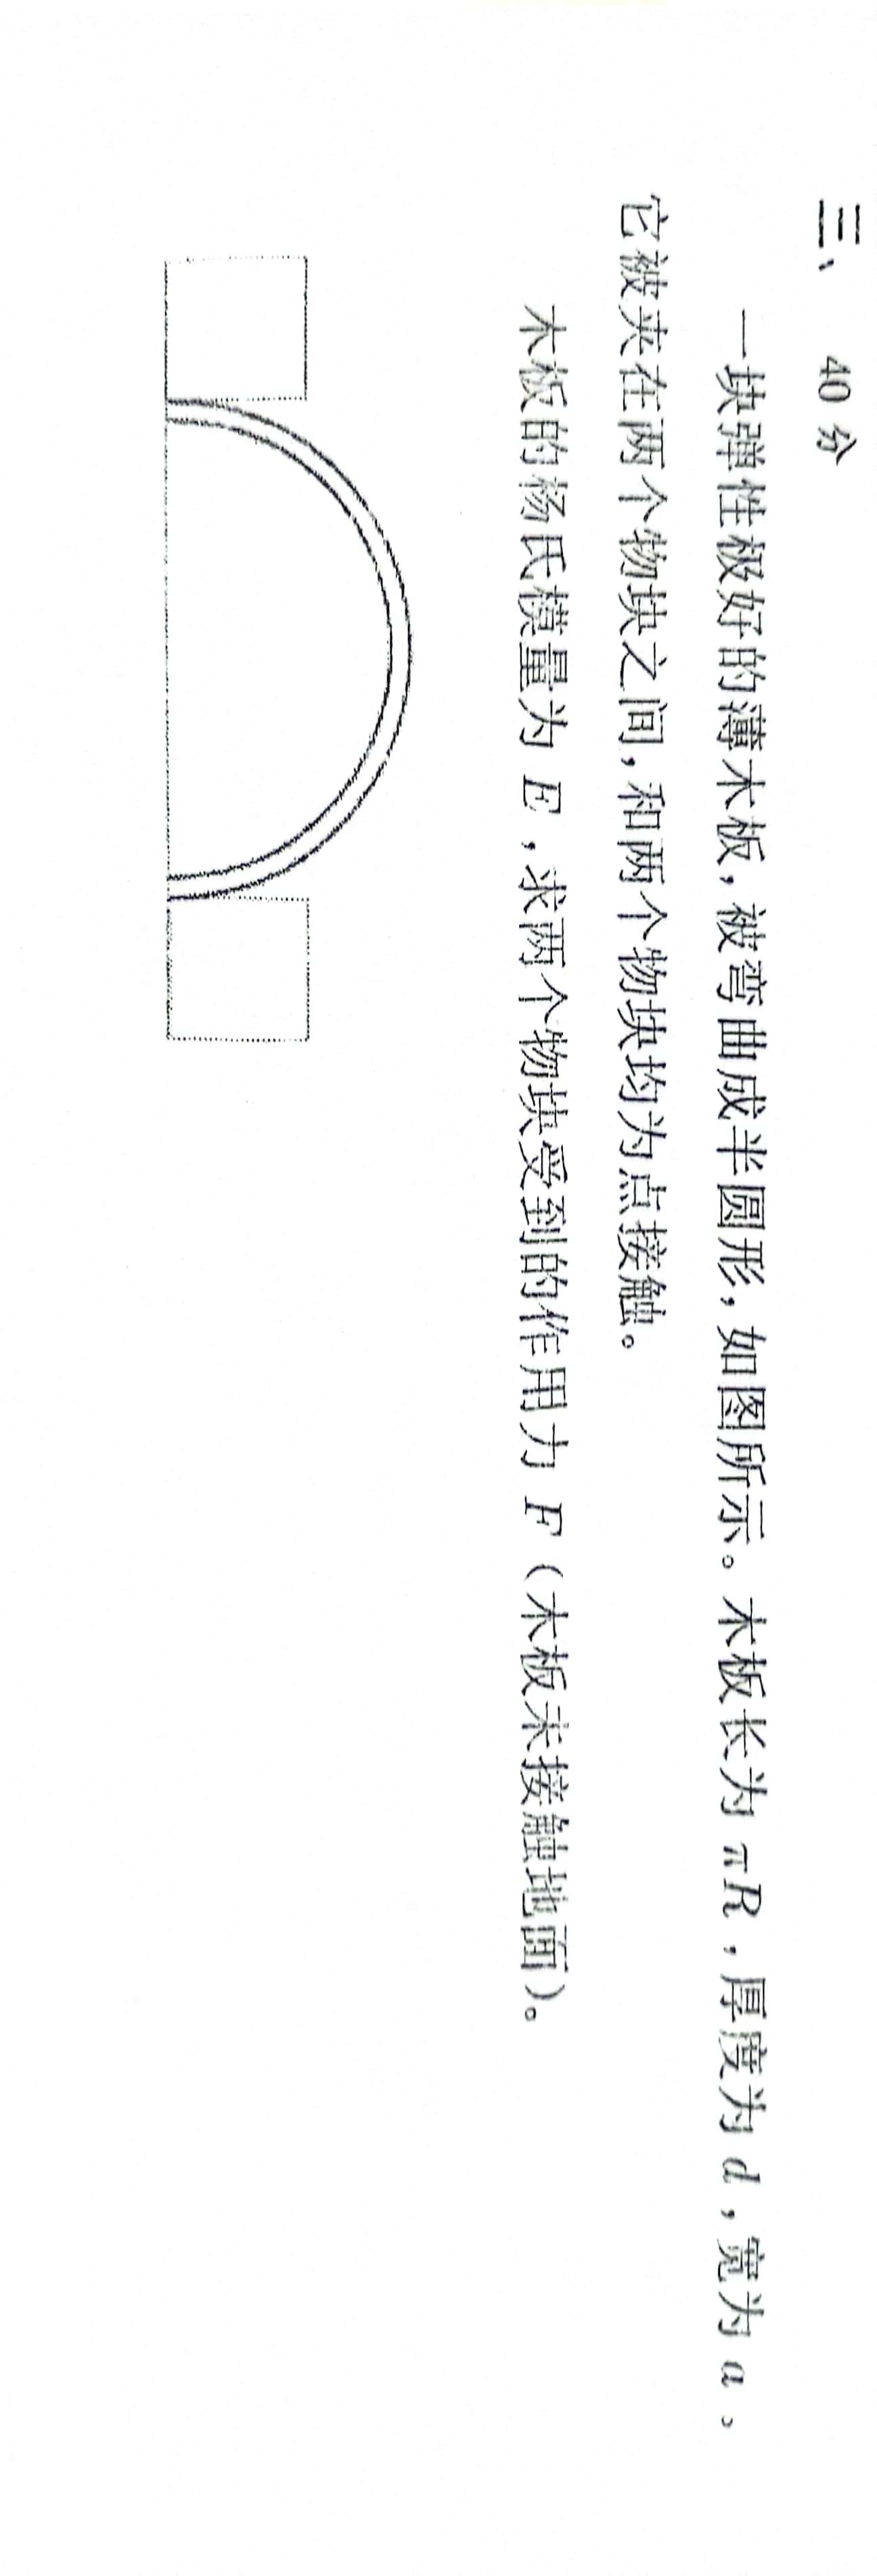 三、 40 分
一块弹性极好的薄木板，被弯曲成半圆形，如图所示。木板长为 πR，厚度为 d，宽为 a。
它被夹在两个物块之间，和两个物块均为点接触。
木板的杨氏模量为 E，求两个物块受到的作用力 F（木板未接触地面）。